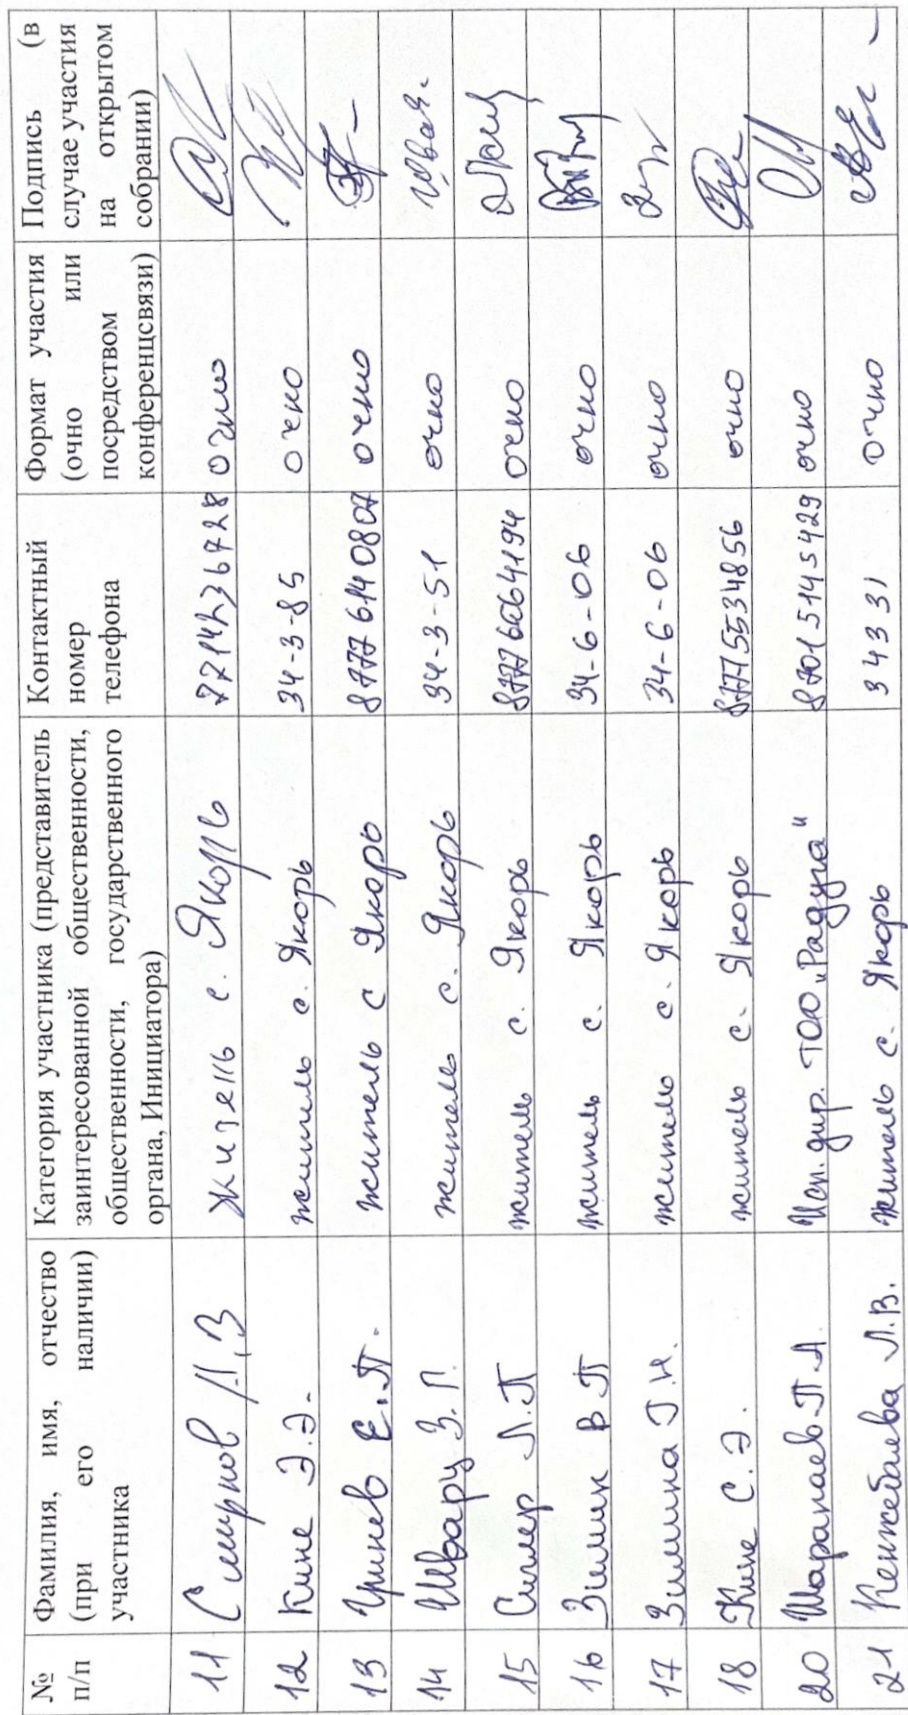 № п/п
Фамилия, имя, отчество (при его наличии) участника
Категория участника (представитель заинтересованной общественности, общественности, государственного органа, Инициатора)
Контактный номер телефона
Формат участия (очно или посредством конференцсвязи)
Подпись (в случае участия на открытом собрании)
11 Смирнов А.В житель с. Якорь 7714236728 очно
12 Кине Э.Э. житель с. Якорь 34-3-85 очно
13 Гринев Е.П. житель с Якорь 87776140807 очно
14 Шварц З.Г. житель с. Якорь 34-3-51 очно
15 Л.П житель с. Якорь 87776064194 очно
16 Зимин В.П житель с. Якорь 34-6-06 очно
17 Зимина Г.Н. житель с. Якорь 34-6-06 очно
18 Кине С.Э. житель с. Якорь 87775534856 очно
20 Шарапаев П.А. Исп. дир. ТОО „Радуга" 87015145429 очно
21 Кенжебаева Л.В. житель с. Якорь 34331 очно